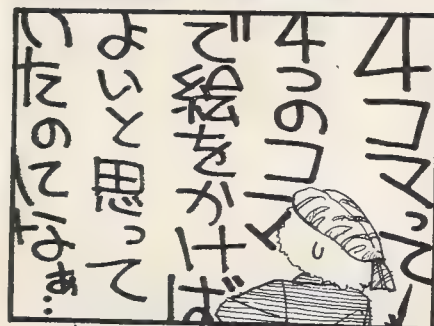 4コマって
4つのコマ
で絵をかけば
よいと思って
いたのになぁ‥